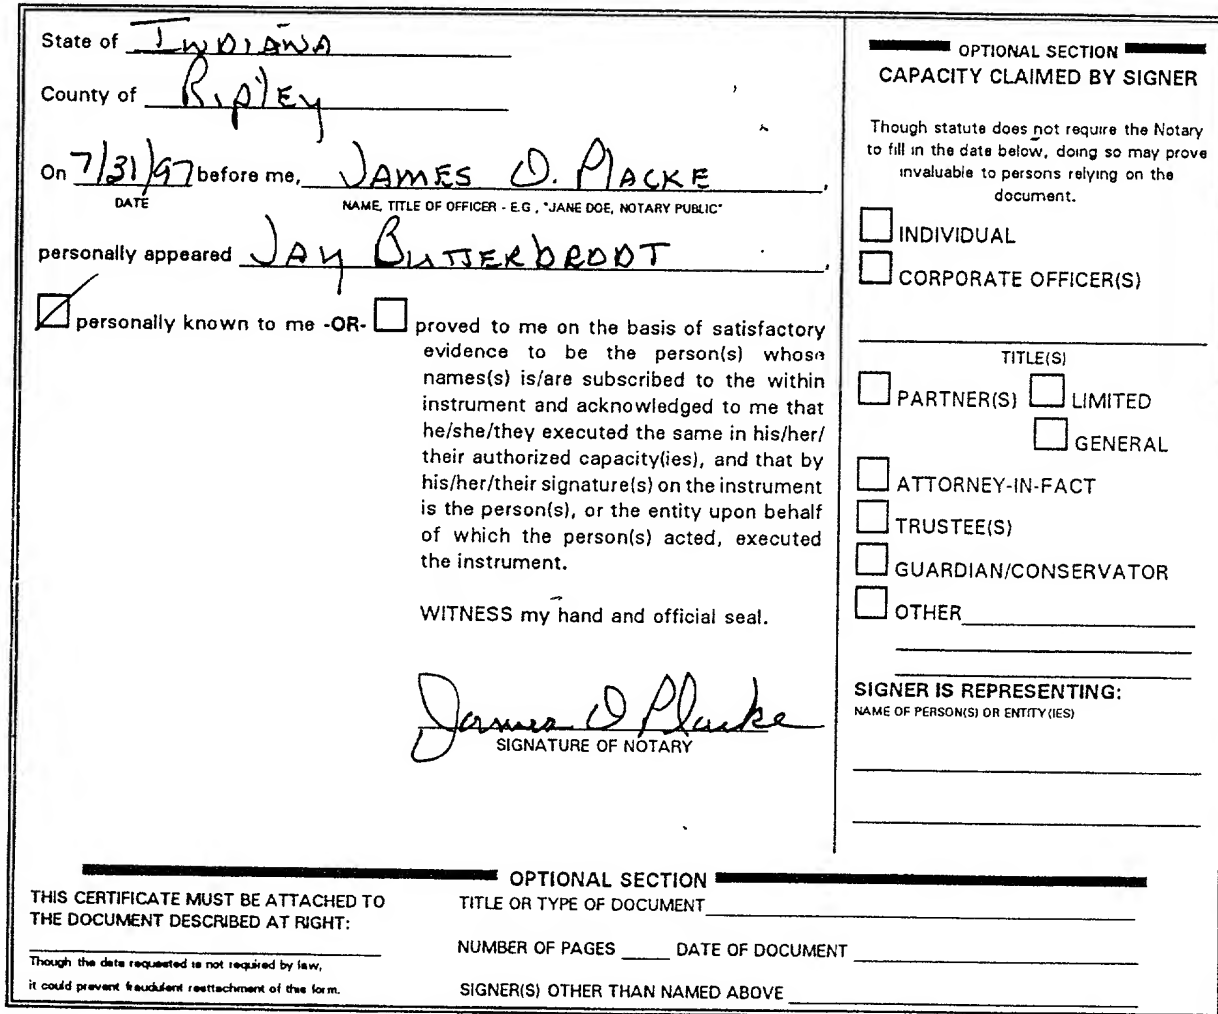 State of INDIANA
County of RIPLEY
On 7/31/97 before me, JAMES D. PLACKE,
DATE
NAME, TITLE OF OFFICER - E.G., "JANE DOE, NOTARY PUBLIC"
personally appeared JAY BUTTERBRODT,
personally known to me -OR- proved to me on the basis of satisfactory
evidence to be the person(s) whose
names(s) is/are subscribed to the within
instrument and acknowledged to me that
he/she/they executed the same in his/her/
their authorized capacity(ies), and that by
his/her/their signature(s) on the instrument
is the person(s), or the entity upon behalf
of which the person(s) acted, executed
the instrument.
WITNESS my hand and official seal.
James D Placke
SIGNATURE OF NOTARY
OPTIONAL SECTION
CAPACITY CLAIMED BY SIGNER
Though statute does not require the Notary
to fill in the data below, doing so may prove
invaluable to persons relying on the
document.
INDIVIDUAL
CORPORATE OFFICER(S)
TITLE(S)
PARTNER(S) LIMITED
GENERAL
ATTORNEY-IN-FACT
TRUSTEE(S)
GUARDIAN/CONSERVATOR
OTHER
SIGNER IS REPRESENTING:
NAME OF PERSON(S) OR ENTITY(IES)
OPTIONAL SECTION
THIS CERTIFICATE MUST BE ATTACHED TO
THE DOCUMENT DESCRIBED AT RIGHT:
Though the data requested is not required by law,
it could prevent fraudulent reattachment of this form.
TITLE OR TYPE OF DOCUMENT
NUMBER OF PAGES DATE OF DOCUMENT
SIGNER(S) OTHER THAN NAMED ABOVE